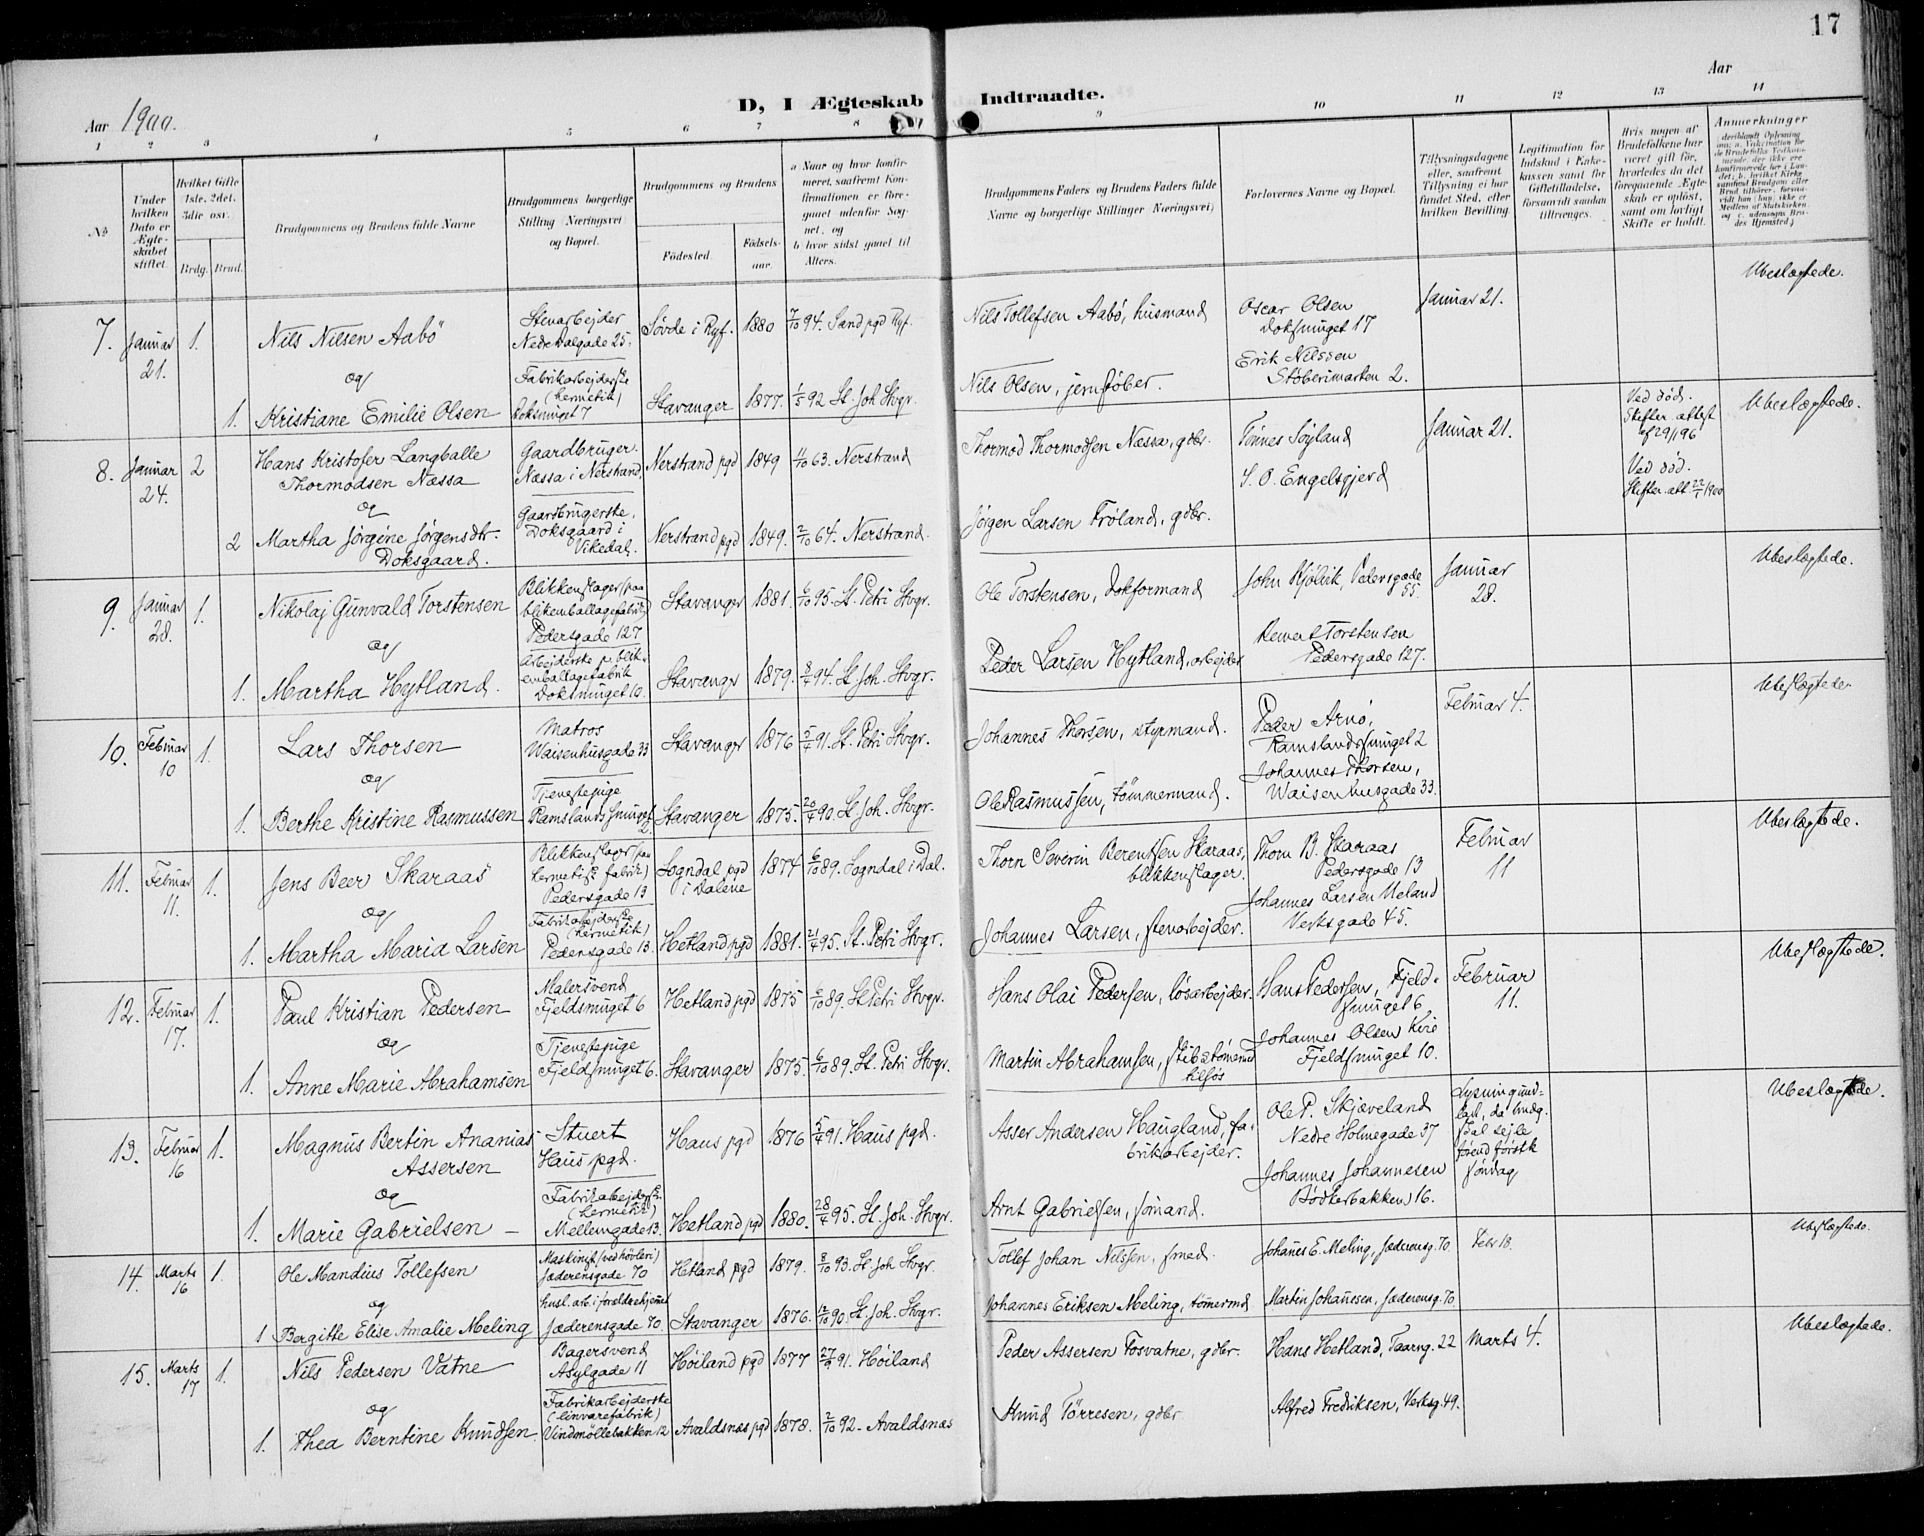 17
D, I Ægteskab Indtraadte.
Aar 1900.
Aar
1 2 3 4 5 6 7 8 9 10 11 12 13 14
No
Under hvilken Dato er Ægteskabet stiftet
Hvilket Gifte 1ste. 2det. 3die osv.
Brdg. Brud.
Brudgommens og Brudens fulde Navne
Brudgommens borgerlige Stilling (Næringsvei) og Bopæl.
Brudgommens og Brudens
Fødested
Fødsels-aar.
a Naar og hvor konfirmeret, saafremt Konfirmationen er foregaaet udenfor Sognet, og
b hvor sidst gaaet til Alters.
Brudgommens Faders og Brudens Faders fulde Navne og borgerlige Stillinger (Næringsvei)
Forlovernes Navne og Bopæl.
Tillysningsdagene eller, saafremt Tillysning ei har fundet Sted, efter hvilken Bevilling.
Legitimation for Indskud i Enkekassen samt for Giftetilladelse, forsaavidt saadan tiltrænges.
Hvis nogen af Brudefolkene har været gift før, hvorledes da det foregaaende Ægteskab er opløst, samt om lovligt Skifte er holdt.
Anmerkninger
7. Januar 21. 1. Nils Nilsen Aabö
Stenarbejder
Nedre Dalgade 25.
Søvde i Ryf. 1880 7/10 94. Sand pgd Ryf.
Nils Tollefsen Aabö, husmand
Oscar Olsen
Doksmuget 17
Januar 21.
Ubeslægtede.
og
1. Kristiane Emilie Olsen
Fabrikarbejderske
(hermetik)
Doksmuget 7
Stavanger 1877. 1/5 92 St. Joh. Stvgr.
Nils Olsen, jernstøber.
Erik Nilssen
Støberimarken 2.
8. Januar 24. 2 Hans Kristofer Langballe
Thormodsen Næssa
Gaardbruger.
Næssa i Nerstrand
Nerstrand pgd 1849 11/10 63. Nerstrand
Thormod Thormodsen Næssa, gdbr.
Tönnes Söyland
Januar 21.
Ved död.
Skifteattest
af 29/1 96
Ubeslægtede.
og
2 Martha Jörgine Jörgensdtr.
Doksgaard.
Gaardbrugerske.
Doksgaard i
Vikedal.
Nerstrand pgd 1849. 2/10 64. Nerstrand.
Jörgen Larsen Fröland, gdbr.
S. O. Engelsgjerd
Ved död.
Skifteatt. 22/1 1900
9. Januar 28. 1. Nikolaj Gunvald Torstensen
Blikkenslager (paa
blikemballagefabrik)
Pedersgade 127
Stavanger 1881. 6/10 95. St. Petri Stvgr.
Ole Torstensen, dokformand
John Kjölvik, Pedersgade 55.
Januar 28.
Ubeslægtede.
og
1. Martha Hytland.
Arbejderske p. blik-
emballagefabrik
Doksmuget 10.
Stavanger 1879. 8/4 94. St. Joh. Stvgr.
Peder Larsen Hytland, arbejder
Torstensen
Pedersgade 127.
10. Februar 10 1. Lars Thorsen
Matros
Waisenhusgade 33
Stavanger 1876 5/4 91. St. Petri Stvgr.
Johannes Thorsen, styrmand.
Peder Arnö,
Ramslandssmuget 2
Februar 4.
Ubeslægtede.
og
1. Berthe Kristine Rasmussen
Tjenestepige
Ramslandssmuget 2
Stavanger 1875. 20/4 90. St. Joh. Stvgr.
Ole Rasmussen, tömmermand.
Johannes Thorsen,
Waisenhusgade 33.
11. Februar 11. 1. Jens Beer Skaraas
Blikkenslager (paa
hermetisk fabrik)
Pedersgade 13
Sogndal pgd i Dalene 1874 6/10 89. Sogndal i Dal.
Thorn Severin Berentsen Skaraas,
blikkenslager.
Thorn B. Skaraas
Pedersgade 13
Februar 11
Ubeslægtede.
og
1. Martha Maria Larsen
Fabrikarbejderske
(hermetik)
Pedersgade 13.
Hetland pgd 1881. 21/4 95. St. Petri Stvgr.
Johannes Larsen, stenarbejder.
Johannes Larsen Ueland
Verksgade 45.
12. Februar 17. 1. Paul Kristian Pedersen
Malersvend
Fjeldsmuget 6
Hetland pgd 1875 6/10 89. St. Petri Stvgr.
Hans Olai Pedersen, lösarbejder.
Hans Pedersen, Fjeld-
smuget 6
Februar 11.
Ubeslægtede.
og
1. Anne Marie Abrahamsen
Tjenestepige
Fjeldsmuget 6.
Stavanger 1875. 6/10 89. St. Petri Stvgr.
Martin Abrahamsen, skibstömmermd
tilsös
Johannes Olsen
Fjeldsmuget 10.
13. Februar 16 1. Magnus Bertin Ananias
Assersen
Stuert
Haus pgd.
Haus pgd 1876 5/4 91. Haus pgd.
Asser Andersen Haugland, fa-
brikarbejder.
Ole P. Skjæveland
Nedre Holmegade 37
Lysning und-
lad., da brudg.
skal sejle
förend förstk.
söndag
Ubeslægtede.
og
1. Marie Gabrielsen
Fabrikarbejderske
(hermetik)
Mellemgade 13.
Hetland pgd 1880. 28/4 95. St. Joh. Stvgr.
Arnt Gabrielsen, sömand.
Johannes Johannesen
Bödkerbakken 16.
14. Marts 16 1. Ole Mandius Tollefsen
Maskinist (ved hövleri)
Jæderensgade 70
Hetland pgd 1879. 8/10 93. St. Joh. Stvgr.
Tollef Johan Nilssen, smed.
Johannes E. Meling, Jæderensg. 70.
Febr 18.
Ubeslægtede.
og
1 Bergitte Elise Amalie Meling
husl. arb. i forældrehjemmet
Jæderensgade 70.
Stavanger 1876. 12/10 90. St. Joh. Stvgr.
Johannes Eriksen Meling, tömermd
Martin Johannessen, Jæderensg. 70
15. Marts 17 1. Nils Pedersen Vatne
Bagersvend
Asylgade 11
Höiland pgd 1877 27/9 91. Höiland
Peder Assersen Fosvatne, gdbr.
Hans Hetland, Taarng. 22
Marts 4.
Ubeslægtede.
og
1. Thea Berntine Knudsen
Fabrikarbejderske
(linvarefabrik)
Vindmöllebakken 12
Avaldsnæs pgd 1878. 2/10 92. Avaldsnæs
Knud Törresen, gdbr
Alfred Fredriksen, Verksg. 49.